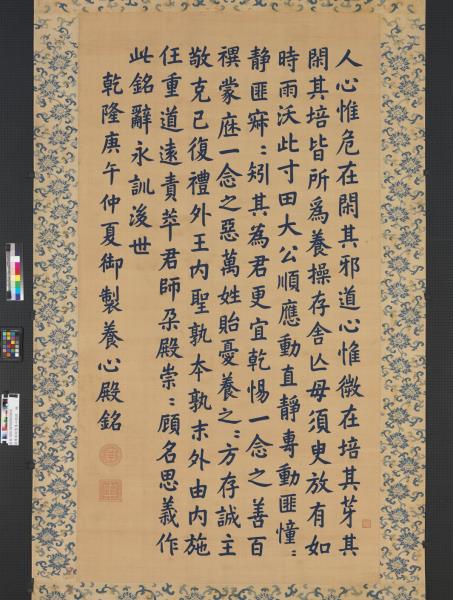 人心惟危在閑其邪道心惟微在培其芽其
閑其培皆所爲養操存舍亾毋須臾放有如
時雨沃此寸田大公順應動直靜專動匪憧〻
靜匪寂〻矧其為君更宜乾惕一念之善百
禩蒙庥一念之惡萬姓貽憂養之〻方存誠主
敬克己復禮外王内聖孰夲孰末外由内施
任重道遠責萃君師朶殿崇〻顧名思義作
此銘辭永訓後世
乾隆庚午仲夏御製養心殿銘